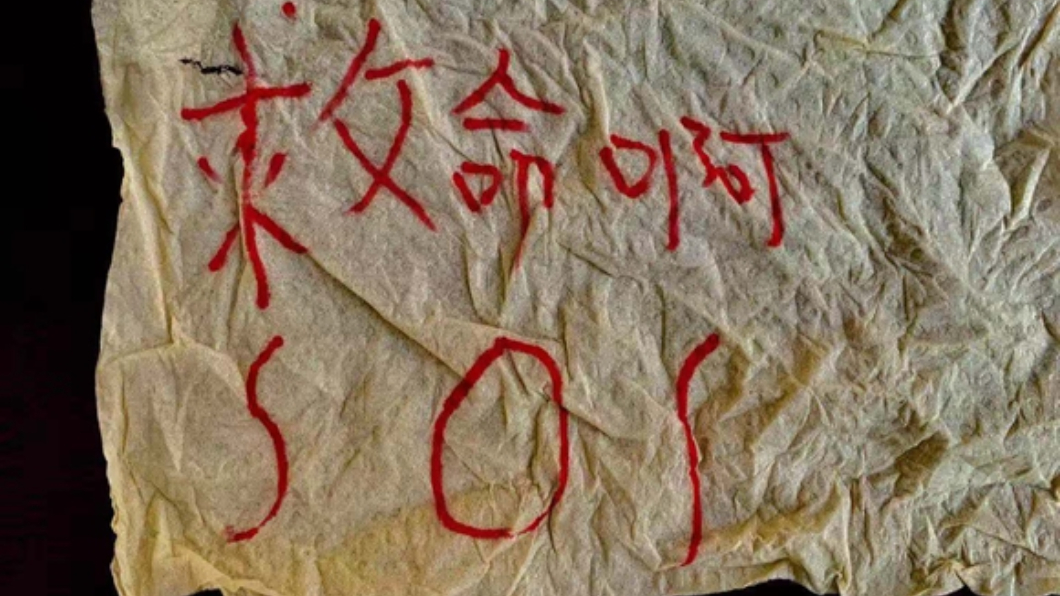 救命啊
SOS